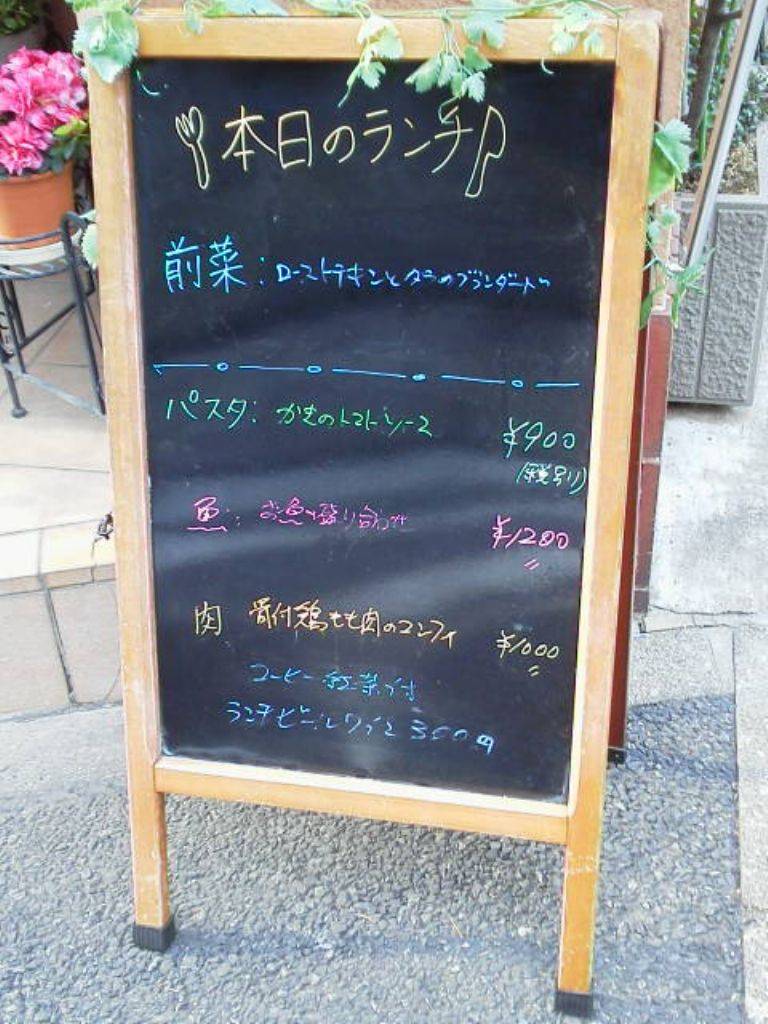 本日のランチ
前菜: ローストチキンとタラのブランダード
パスタ: かきのトマトソース ¥900
(税別)
魚: お魚の盛り合わせ ¥1200
〃
肉 骨付鶏もも肉のコンフィ ¥1000
〃
コーヒー 紅茶付
ランチビール ワイン 300円